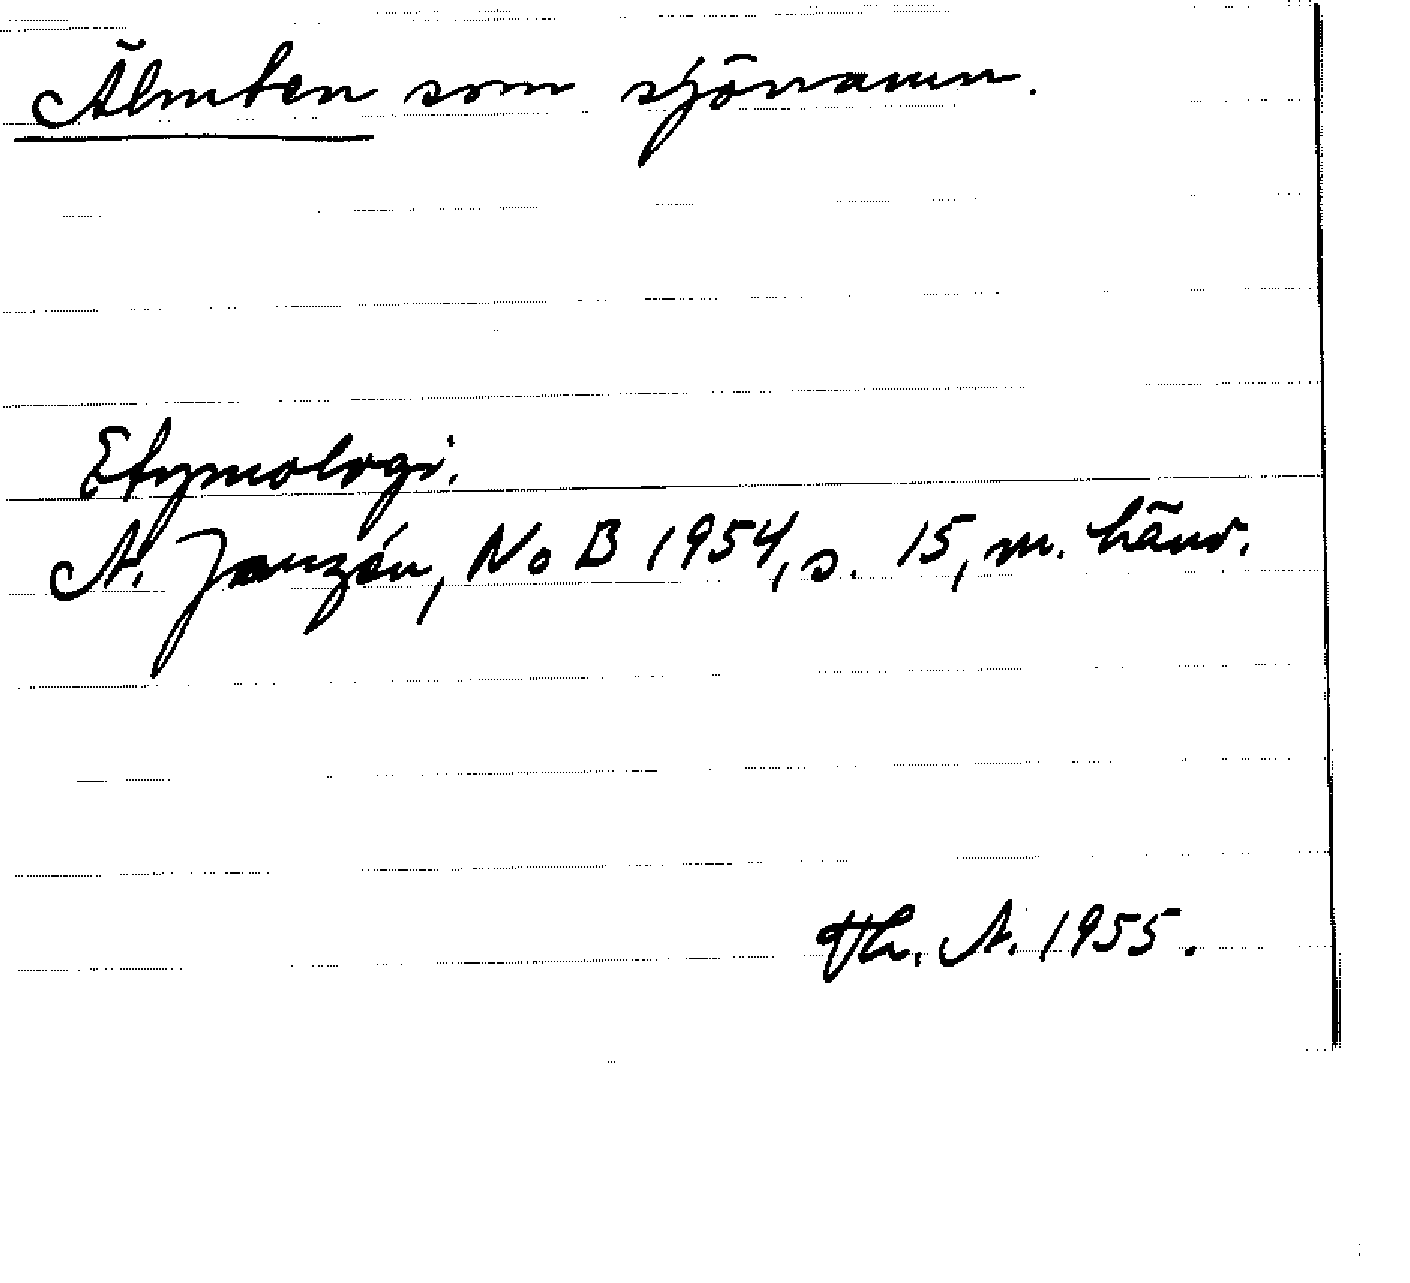 Älmten som sjönamn.
Etymologi.
A. Janzén, No B 1954, s. 15, m. hänv.
Th. A. 1955.